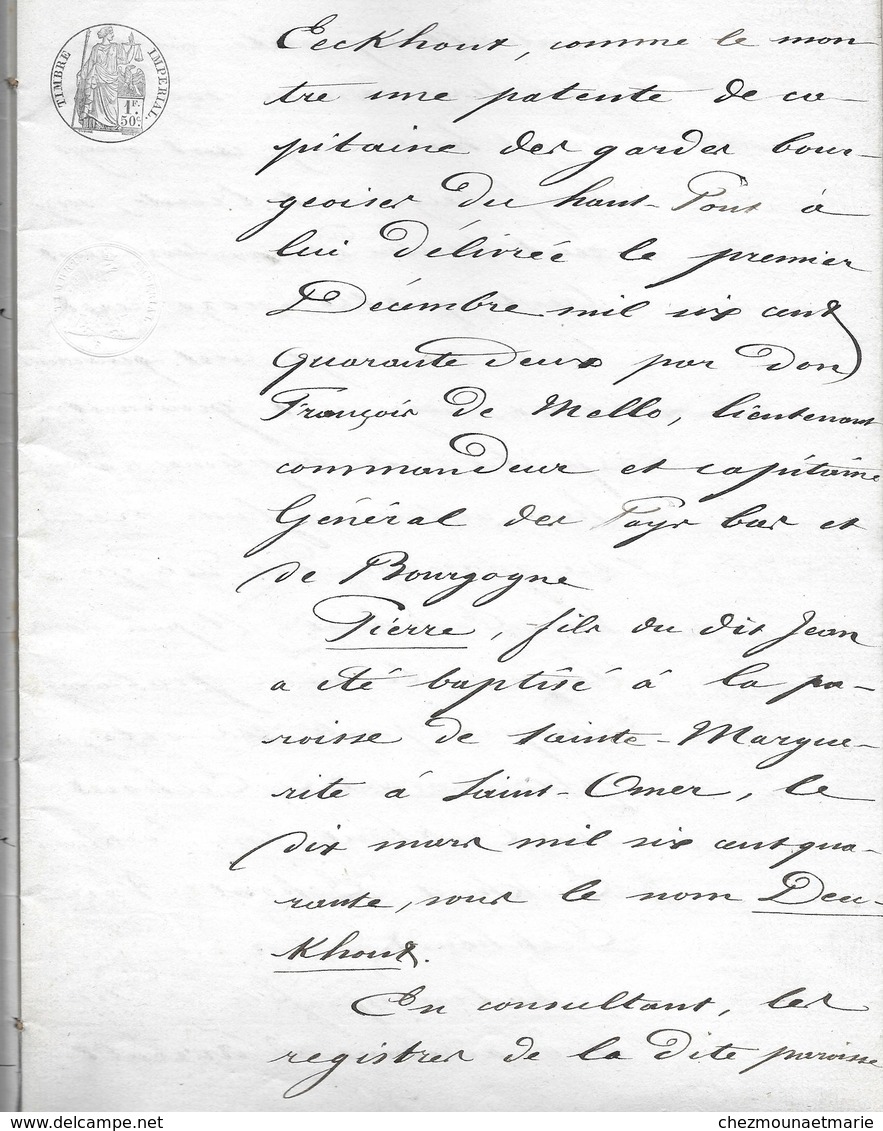 TIMBRE IMPÉRIAL.
1F.
50c.
Eeckhout, comme le mon-
tre une patente de ca-
pitaine des gardes bour-
geoises du haut-Pont à
lui délivrée le premier
Décembre mil six cent
quarante deux par don
François de Mello, lieutenant
commandeur et capitaine
Général des Pays bas et
de Bourgogne
Pierre, fils du dit Jean
a été baptisé à la pa-
roisse de Sainte-Margue-
rite à Saint-Omer, le
dix mars mil six cent qua-
rante, sous le nom Deec-
khout.
En consultant, les
registres de la dite paroisse
chezmounaetmarie